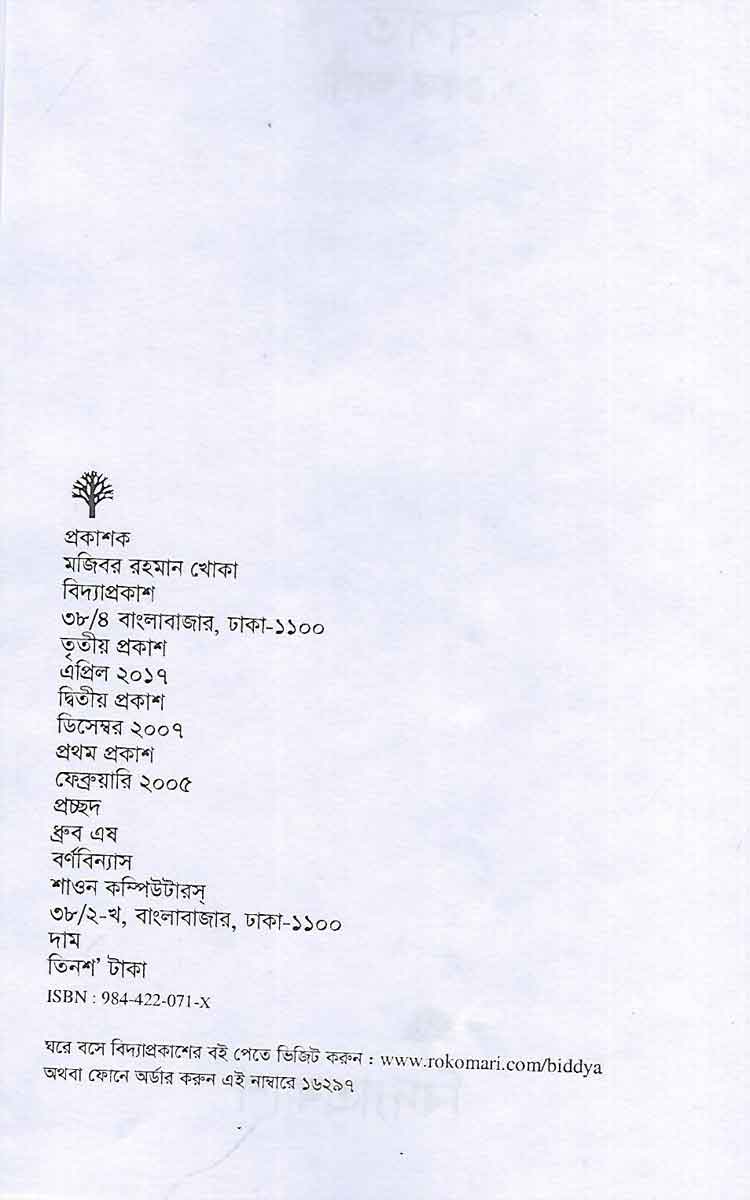 প্রকাশক
মজিবর রহমান খোকা
বিদ্যাপ্রকাশ
৩৮/৪ বাংলাবাজার, ঢাকা-১১০০
তৃতীয় প্রকাশ
এপ্রিল ২০১৭
দ্বিতীয় প্রকাশ
ডিসেম্বর ২০০৭
প্রথম প্রকাশ
ফেব্রুয়ারি ২০০৫
প্রচ্ছদ
ধ্রুব এষ
বর্ণবিন্যাস
শাওন কম্পিউটারস্
৩৮/২-খ, বাংলাবাজার, ঢাকা-১১০০
দাম
তিনশ’ টাকা
ISBN : 984-422-071-X
ঘরে বসে বিদ্যাপ্রকাশের বই পেতে ভিজিট করুন : www.rokomari.com/biddya
অথবা ফোনে অর্ডার করুন এই নাম্বারে ১৬২৯৭